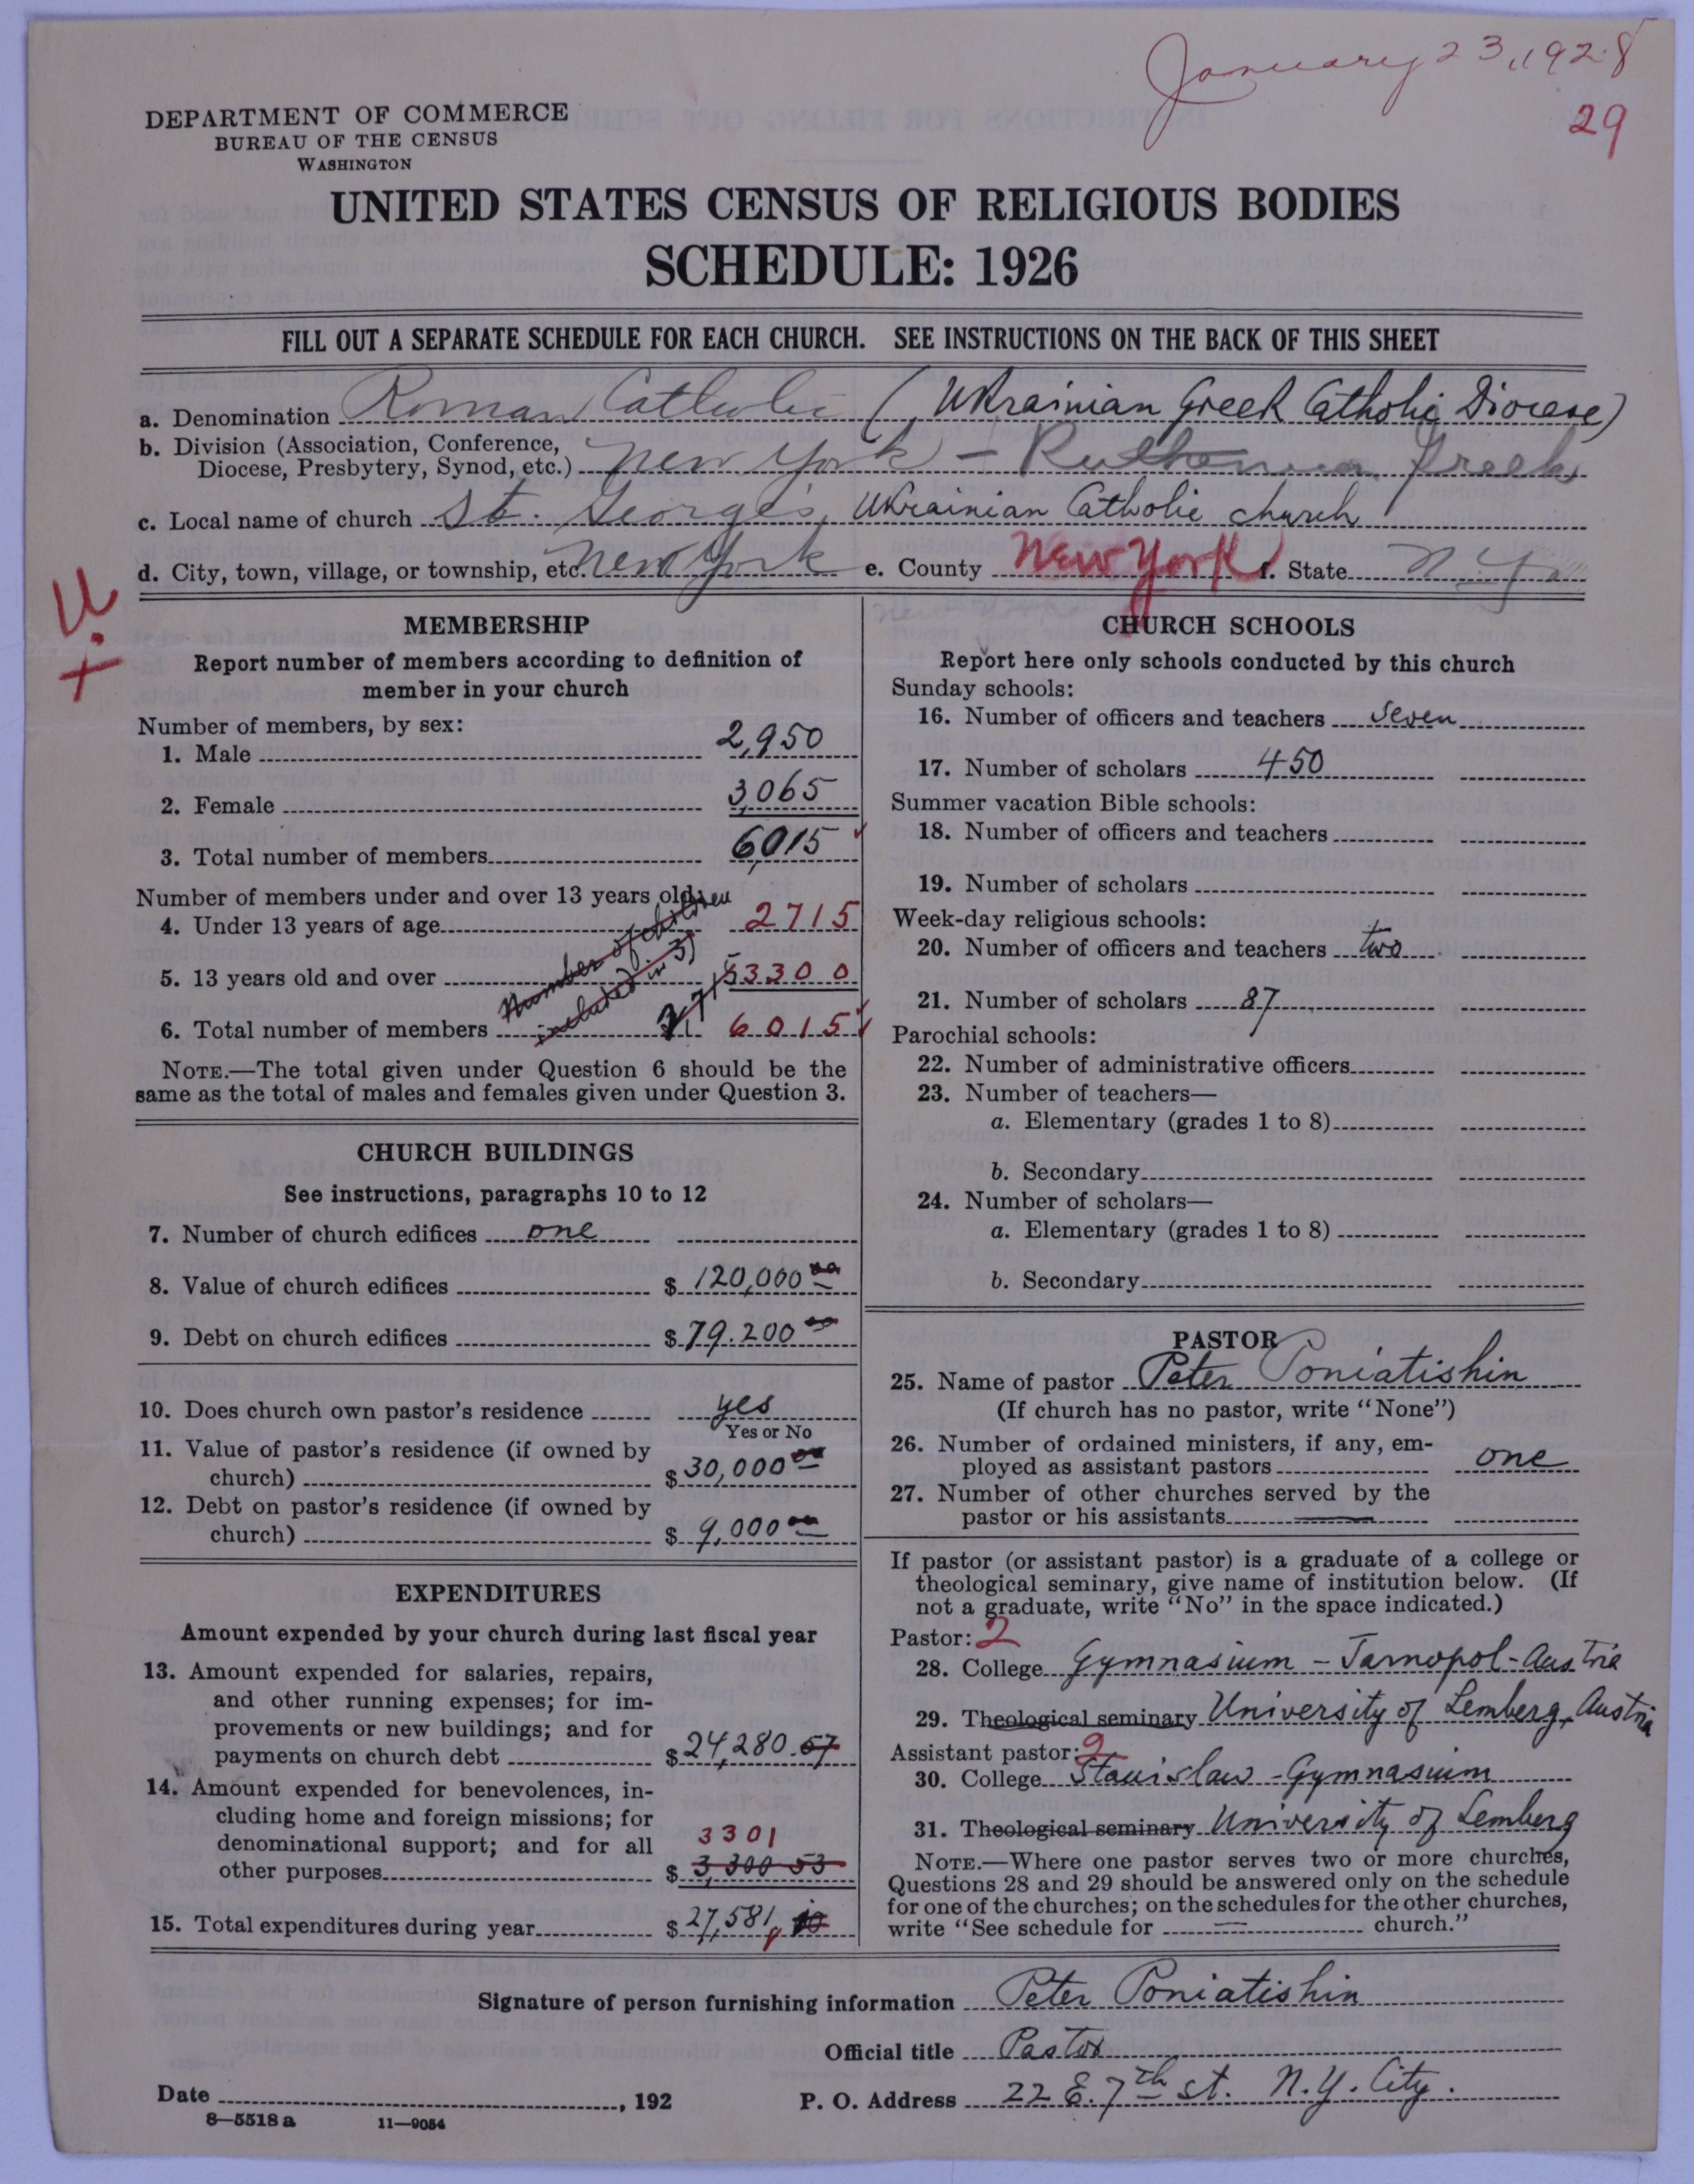 January 23, 1928
29
DEPARTMENT OF COMMERCE
BUREAU OF THE CENSUS
WASHINGTON
UNITED STATES CENSUS OF RELIGIOUS BODIES
SCHEDULE: 1926
FILL OUT A SEPARATE SCHEDULE FOR EACH CHURCH. SEE INSTRUCTIONS ON THE BACK OF THIS SHEET
a. Denomination Roman Catholic (Ukrainian Greek Catholic Diocese)
b. Division (Association, Conference,
Diocese, Presbytery, Synod, etc.) New York - Ruthenian Greek
c. Local name of church St. George's Ukrainian Catholic church
d. City, town, village, or township, etc. New York e. County New York f. State N.Y.
U.
+
MEMBERSHIP
Report number of members according to definition of
member in your church
Number of members, by sex:
1. Male 2,950
2. Female 3,065
3. Total number of members 6015
Number of members under and over 13 years old:
4. Under 13 years of age 2715
5. 13 years old and over 3300
6. Total number of members 6015
Number of children
included in 3) 2,715
NOTE.—The total given under Question 6 should be the
same as the total of males and females given under Question 3.
CHURCH BUILDINGS
See instructions, paragraphs 10 to 12
7. Number of church edifices one
8. Value of church edifices $ 120,000 00
9. Debt on church edifices $ 79.200 00
10. Does church own pastor's residence yes
Yes or No
11. Value of pastor's residence (if owned by
church) $ 30,000 00
12. Debt on pastor's residence (if owned by
church) $ 9,000 00
EXPENDITURES
Amount expended by your church during last fiscal year
13. Amount expended for salaries, repairs,
and other running expenses; for im-
provements or new buildings; and for
payments on church debt $ 24,280.57
14. Amount expended for benevolences, in-
cluding home and foreign missions; for
denominational support; and for all 3301
other purposes $ 3,300 53
15. Total expenditures during year $ 27,581, 10
CHURCH SCHOOLS
Report here only schools conducted by this church
Sunday schools:
16. Number of officers and teachers seven
17. Number of scholars 450
Summer vacation Bible schools:
18. Number of officers and teachers
19. Number of scholars
Week-day religious schools:
20. Number of officers and teachers two
21. Number of scholars 87
Parochial schools:
22. Number of administrative officers
23. Number of teachers—
a. Elementary (grades 1 to 8)
b. Secondary
24. Number of scholars—
a. Elementary (grades 1 to 8)
b. Secondary
PASTOR
25. Name of pastor Peter Poniatishin
(If church has no pastor, write "None")
26. Number of ordained ministers, if any, em-
ployed as assistant pastors one
27. Number of other churches served by the
pastor or his assistants —
If pastor (or assistant pastor) is a graduate of a college or
theological seminary, give name of institution below. (If
not a graduate, write "No" in the space indicated.)
Pastor: 2
28. College Gymnasium - Tarnopol - Austria
29. Theological seminary University of Lemberg, Austria
Assistant pastor: 2
30. College Stanislaw - Gymnasium
31. Theological seminary University of Lemberg
NOTE.—Where one pastor serves two or more churches,
Questions 28 and 29 should be answered only on the schedule
for one of the churches; on the schedules for the other churches,
write "See schedule for — church."
Signature of person furnishing information Peter Poniatishin
Official title Pastor
Date , 192 P. O. Address 22 E. 7th st. N.Y. City.
8—5518 a 11—9054